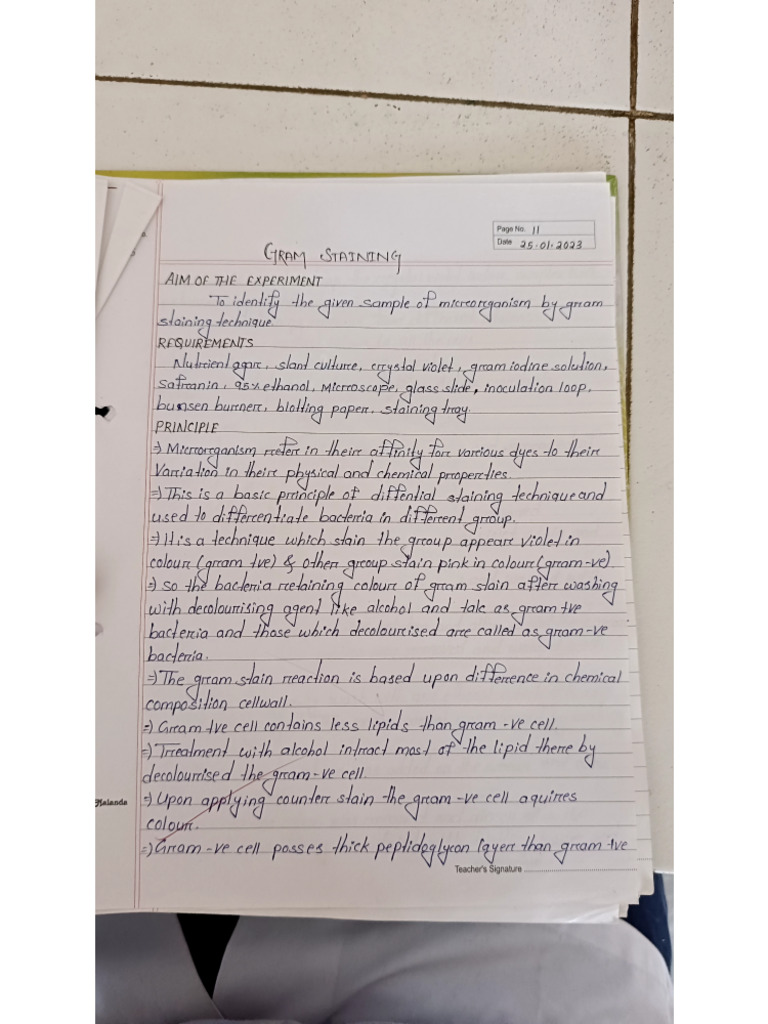 Page No. 11
Date 25.01.2023
GRAM STAINING
AIM OF THE EXPERIMENT
To identify the given sample of microorganism by gram
staining technique.
REQUIREMENTS
Nutrient agar, slant culture, crystal violet, gram iodine solution,
safranin, 95% ethanol, Microscope, glass slide, inoculation loop,
bunsen burner, blotting paper, staining tray.
PRINCIPLE
⇒ Microorganism refer in their affinity for various dyes to their
Variation in their physical and chemical properties.
⇒ This is a basic principle of diffential staining technique and
used to differentiate bacteria in different group.
⇒ It is a technique which stain the group appear violet in
colour (gram +ve) & other group stain pink in colour (gram-ve).
⇒ So the bacteria retaining colour of gram stain after washing
with decolourising agent like alcohol and talc as gram +ve
bacteria and those which decolourised are called as gram-ve
bacteria.
⇒ The gram stain reaction is based upon difference in chemical
composition cellwall.
⇒ Gram +ve cell contains less lipids than gram -ve cell.
⇒ Treatment with alcohol intract most of the lipid there by
decolourised the gram-ve cell.
Kalanda
⇒ Upon applying counter stain the gram -ve cell aquires
colour.
⇒ Gram -ve cell posses thick peptidoglycon layer than gram +ve
Teacher's Signature